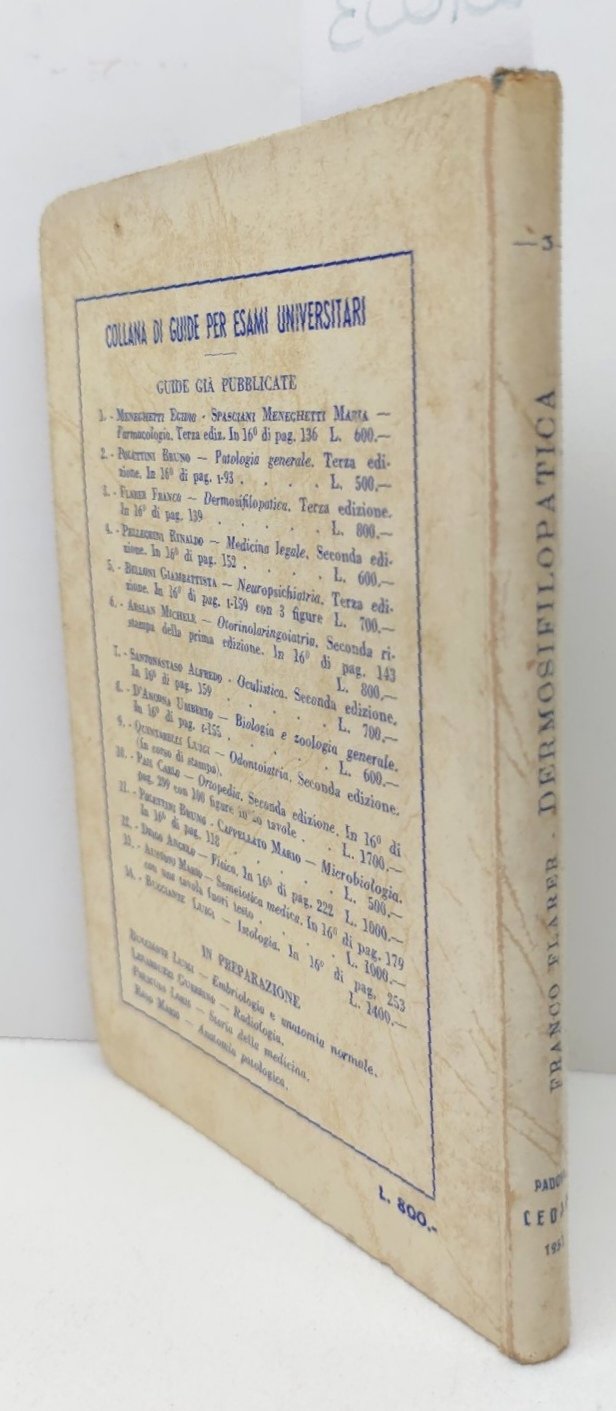 COLLANA DI GUIDE PER ESAMI UNIVERSITARI
GUIDE GIÀ PUBBLICATE
1. - MENEGHETTI EGIDIO - SPASCIANI MENEGHETTI MARIA —
Farmacologia. Terza ediz. In 16º di pag. 136 L. 600.—
2. - POLETTINI BRUNO — Patologia generale. Terza edi-
zione. In 16º di pag. 1-93 . . . . L. 500,—
3. - FLARER FRANCO — Dermosifilopatica. Terza edizione.
In 16º di pag. 139 . . . . . L. 800.—
4. - PELLEGRINI RINALDO — Medicina legale. Seconda edi-
zione. In 16º di pag. 152 . . . . L. 600,—
5. - BELLONI GIAMBATTISTA — Neuropsichiatria. Terza edi-
zione. In 16º di pag. 1-159 con 3 figure L. 700.—
6. - ARSLAN MICHELE — Otorinolaringoiatria. Seconda ri-
stampa della prima edizione. In 16º di pag. 143
L. 800,—
7. - SANTONASTASO ALFREDO - Oculistica. Seconda edizione.
In 16º di pag. 159 . . . . . L. 700,—
8. - D'ANCONA UMBERTO — Biologia e zoologia generale.
In 16º di pag. 1-155 . . . . . L. 600.—
9. - QUINTARELLI LUIGI — Odontoiatria. Seconda edizione.
(In corso di stampa).
10. - PAIS CARLO — Ortopedia. Seconda edizione. In 16º di
pag. 299 con 100 figure in 20 tavole . . L. 1700.—
11. - POLETTINI BRUNO - CAPPELLATO MARIO — Microbiologia.
In 16º di pag. 118 . . . . . L. 500,—
12. - DRIGO ANGELO — Fisica. In 16º di pag. 222 L. 1000.—
13. - AUSTONI MARIO — Semeiotica medica. In 16º di pag. 179
con una tavola fuori testo . . . . L. 1000.—
14. - BUCCIANTE LUIGI — Istologia. In 16º di pag. 253
L. 1400.—
IN PREPARAZIONE
BUCCIANTE LUIGI — Embriologia e anatomia normale.
GUERRINO — Radiologia.
LORIS — Storia della medicina.
MARIO — Anatomia patologica.
L. 800,-
— 3
FRANCO FLARER - DERMOSIFILOPATICA